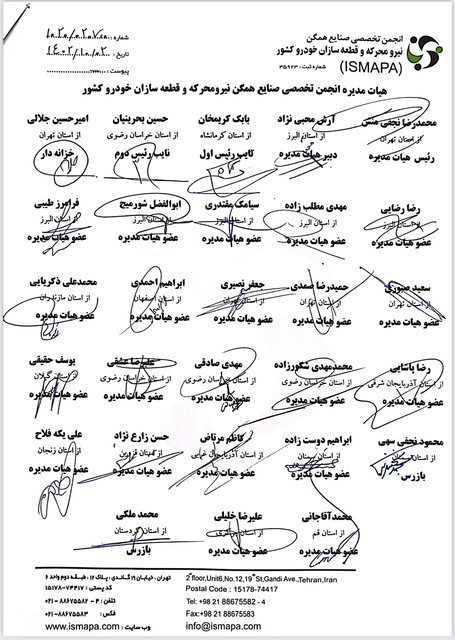 انجمن تخصصی صنایع همگن
نیرو محرکه و قطعه سازان خودرو کشور
(ISMAPA)
شماره ثبت: ۳۵۹۲۳
شماره:
تاریخ: ۱۴۰۲/۱۰/۰۲
پیوست:
هیات مدیره انجمن تخصصی صنایع همگن نیرومحرکه و قطعه سازان خودرو کشور
محمدرضا نجفی منش آرش محبی نژاد بابک کریمخان حسین بحرینیان امیرحسین جلالی
از استان تهران از استان البرز از استان کرمانشاه از استان خراسان رضوی از استان تهران
رئیس هیات مدیره دبیر هیات مدیره نایب رئیس اول نایب رئیس دوم خزانه دار
رضا رضایی مهدی مطلب زاده سیامک مقتدری ابوالفضل شورمیج فرامرز طیبی
از استان البرز از استان البرز از استان البرز از استان البرز از استان البرز
عضو هیات مدیره عضو هیات مدیره عضو هیات مدیره عضو هیات مدیره عضو هیات مدیره
سعید صبوری حمیدرضا صمدی جعفر نصیری ابراهیم احمدی محمدعلی ذکریایی
از استان تهران از استان تهران از استان تهران از استان اصفهان از استان مازندران
عضو هیات مدیره عضو هیات مدیره عضو هیات مدیره عضو هیات مدیره عضو هیات مدیره
رضا پاشایی محمدمهدی شکورزاده مهدی صادقی علیرضا عشقی یوسف حقیقی
از استان آذربایجان شرقی از استان خراسان رضوی از استان خراسان رضوی از استان خراسان رضوی از استان گیلان
عضو هیات مدیره عضو هیات مدیره عضو هیات مدیره عضو هیات مدیره عضو هیات مدیره
محمود نجفی سهی ابراهیم دوست زاده کاظم مرتاض حسن زارع نژاد علی یکه فلاح
از استان از استان سمنان از استان آذربایجان غربی از استان قزوین از استان زنجان
بازرس عضو هیات مدیره عضو هیات مدیره عضو هیات مدیره عضو هیات مدیره
محمد آقاجانی علیرضا خلیلی محمد ملکی
از استان قم از استان مرکزی از استان کردستان
عضو هیات مدیره عضو هیات مدیره بازرس
تهران، خیابان گاندی، پلاک ۱۲، طبقه دوم واحد ۶
کد پستی: ۷۴۴۱۷-۱۵۱۷۸
تلفن: ۴ - ۸۸۶۷۵۵۸۲-۰۲۱
فکس: ۸۸۶۷۵۵۸۳-۰۲۱
وب سایت: www.ismapa.com
2nd floor,Unit6,No.12,19th St,Gandi Ave.,Tehran,Iran
Postal Code : 15178-74417
Tel: +98 21 88675582 - 4
Fax: +98 21 88675583
info@ismapa.com